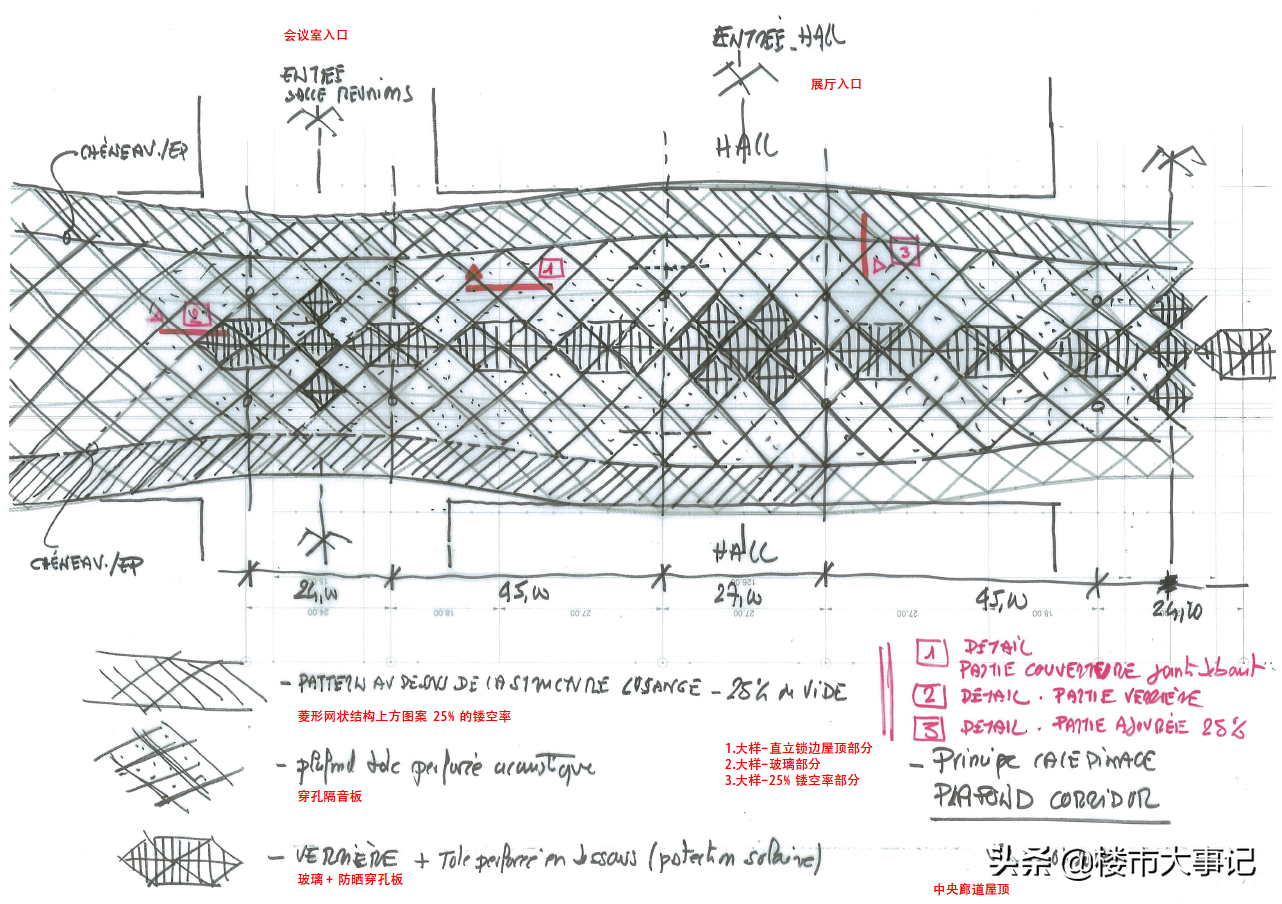 会议室入口
ENTRÉE HALL
ENTRÉE
SALLE REUNIONS
展厅入口
CHÉNEAU./EP
HALL
1
3
2
CHÉNEAU./EP
HALL
24,00
45,00
27,00
45,00
24,00
126.00
24.00
18.00
27.00
27.00
27.00
18.00
- PATTERN AU DESSUS DE LA STRUCTURE LOSANGE - 25% de VIDE
菱形网状结构上方图案 25% 的镂空率
- plafond tole perforée acoustique
穿孔隔音板
- VERRIÈRE + Tole perforée en dessous (protection solaire)
玻璃 + 防晒穿孔板
1 DETAIL
PARTIE COUVERTURE joint debout
2 DETAIL . PARTIE VERRIÈRE
3 DETAIL . PARTIE AJOURÉE 25%
1.大样-直立锁边屋顶部分
2.大样-玻璃部分
3.大样-25% 镂空率部分
- Principe CALEPINAGE
PLAFOND CORRIDOR
头条 @楼市大事记
中央廊道屋顶